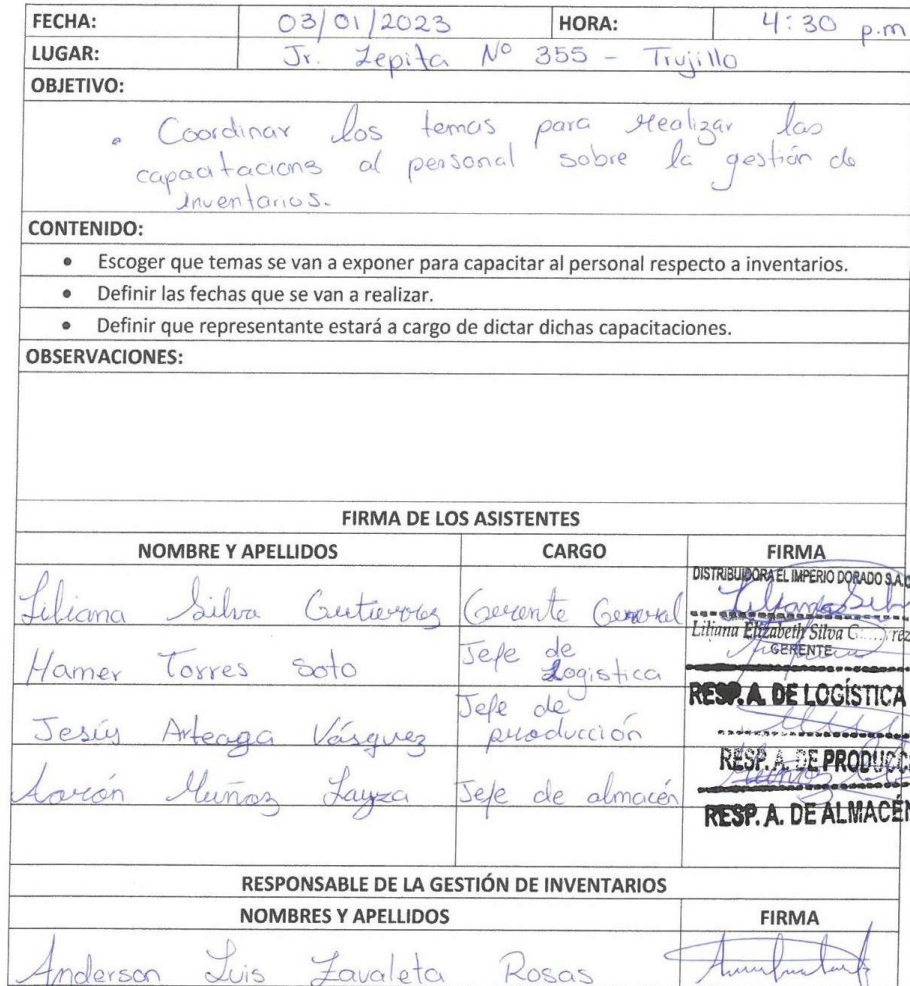 FECHA: 03/01/2023 HORA: 4:30 p.m
LUGAR: Jr. Zepita Nº 355 - Trujillo
OBJETIVO:
• Coordinar los temas para realizar las
capacitacions al personal sobre la gestión de
inventarios.
CONTENIDO:
• Escoger que temas se van a exponer para capacitar al personal respecto a inventarios.
• Definir las fechas que se van a realizar.
• Definir que representante estará a cargo de dictar dichas capacitaciones.
OBSERVACIONES:
FIRMA DE LOS ASISTENTES
NOMBRE Y APELLIDOS CARGO FIRMA
DISTRIBUIDORA EL IMPERIO DORADO S.A.C
Liliana Silva Gutierrez Gerente General
Liliana Elizabeth Silva
GERENTE
Hamer Torres Soto Jefe de Logistica
RESP. A. DE LOGÍSTICA
Jesús Arteaga Vásquez Jefe de producción
RESP. A. DE PRODUCC
Aarón Muñoz Layza Jefe de almacén
RESP. A. DE ALMACÉN
RESPONSABLE DE LA GESTIÓN DE INVENTARIOS
NOMBRES Y APELLIDOS FIRMA
Anderson Luis Zavaleta Rosas